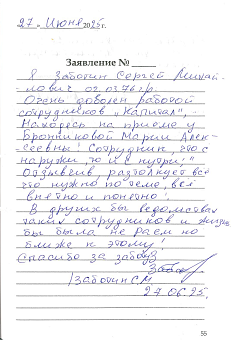 27 " Июня 2025 г.
Заявление №
Я Заботин Сергей Михай-
лович 02.03.76 г.р.
Очень доволен работой
сотрудников "Капитал",
Нахожусь на приеме у
Бронниковой Марии Алек-
сеевны! Сотрудник, что с
наружи, то и с нутри!"
Отзывчив, растолкует всё
что нужно по теме, всё
внятно и понятно!
В других бы ведомствах
таких сотрудников и жизнь
бы была не раем но
ближе к этому!
Спасибо за заботу
/Заботин С.М
27.06.25.
55